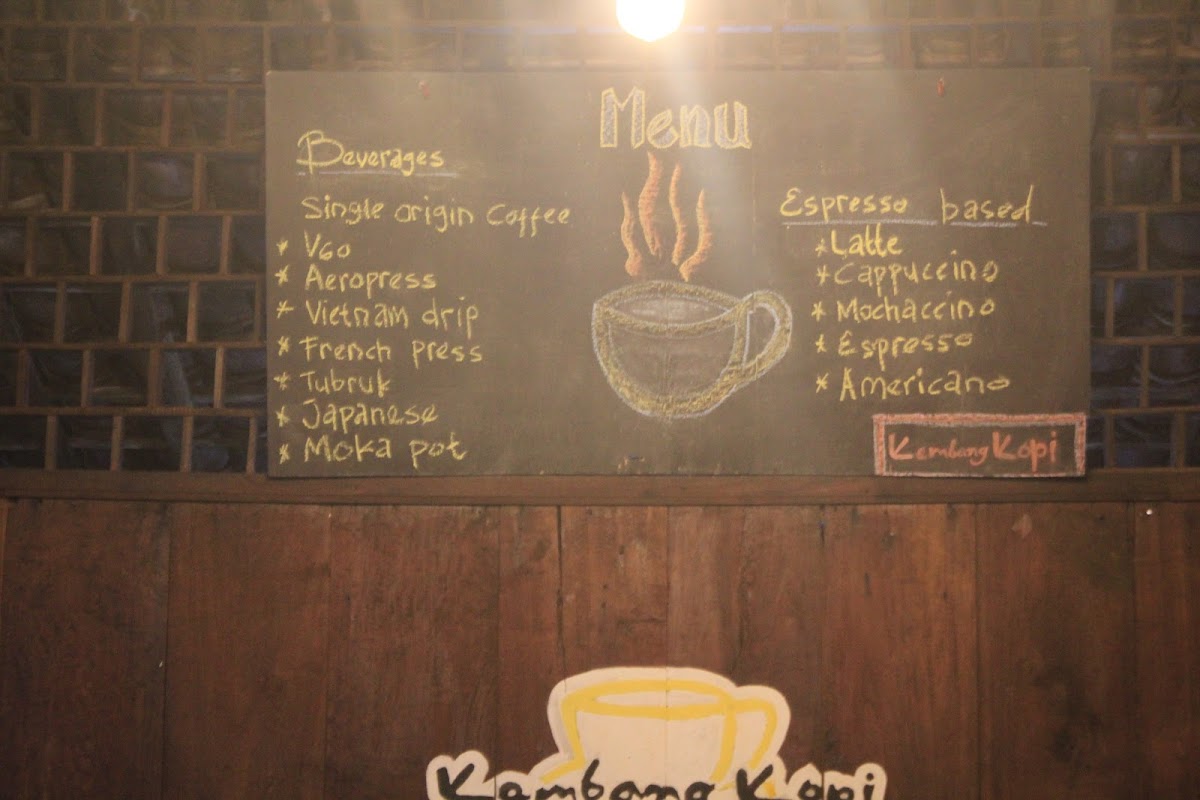 Menu
Beverages
Single origin Coffee
* V60
* Aeropress
* Vietnam drip
* French press
* Tubruk
* Japanese
* Moka pot
Espresso based
* Latte
* Cappuccino
* Mochaccino
* Espresso
* Americano
Kembang Kopi
Kambang Kopi